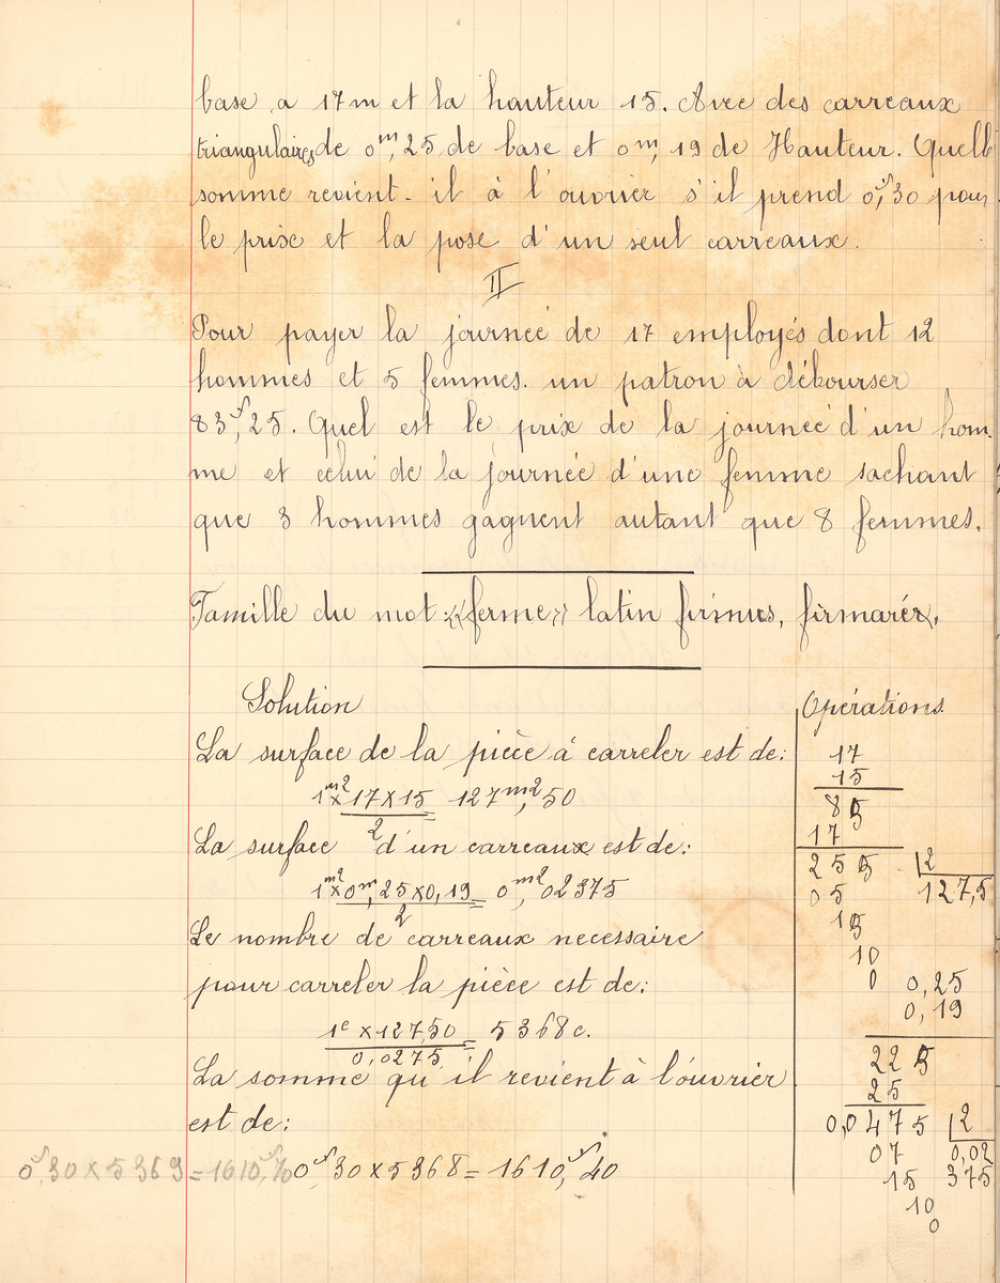 base a 17m et la hauteur 15. Avec des carreaux
triangulaires de 0m,25 de base et 0m,19 de Hauteur. Quelle
somme revient-il à l'ouvrier s'il prend 0f,30 pour
le prix et la pose d'un seul carreaux.
II
Pour payer la journeé de 17 employés dont 12
hommes et 5 femmes. un patron à débourser
83f,25. Quel est le prix de la journeé d'un hom-
me et celui de la journeé d'une femme sachant
que 3 hommes gagnent autant que 8 femmes.
Famille du mot «ferme» latin firmus, firmaréx.
Solution
La surface de la pièce à carreler est de:
1m2 x 17 x 15 = 127m2,50
2
La surface d'un carreaux est de:
1m2 x 0m,25 x 0,19 = 0m2,02375
2
Le nombre de carreaux necessaire
pour carreler la pièce est de:
1c x 127,50 = 5368c.
0,0275
La somme qu'il revient à l'ouvrier
est de:
0f,30 x 5369 = 1610f,70
0f,30 x 5368 = 1610f,40
Opérations
17
15
85
17
255 2
05 127,5
15
10
0 0,25
0,19
225
25
0,0475 2
07 0,02
15 375
10
0